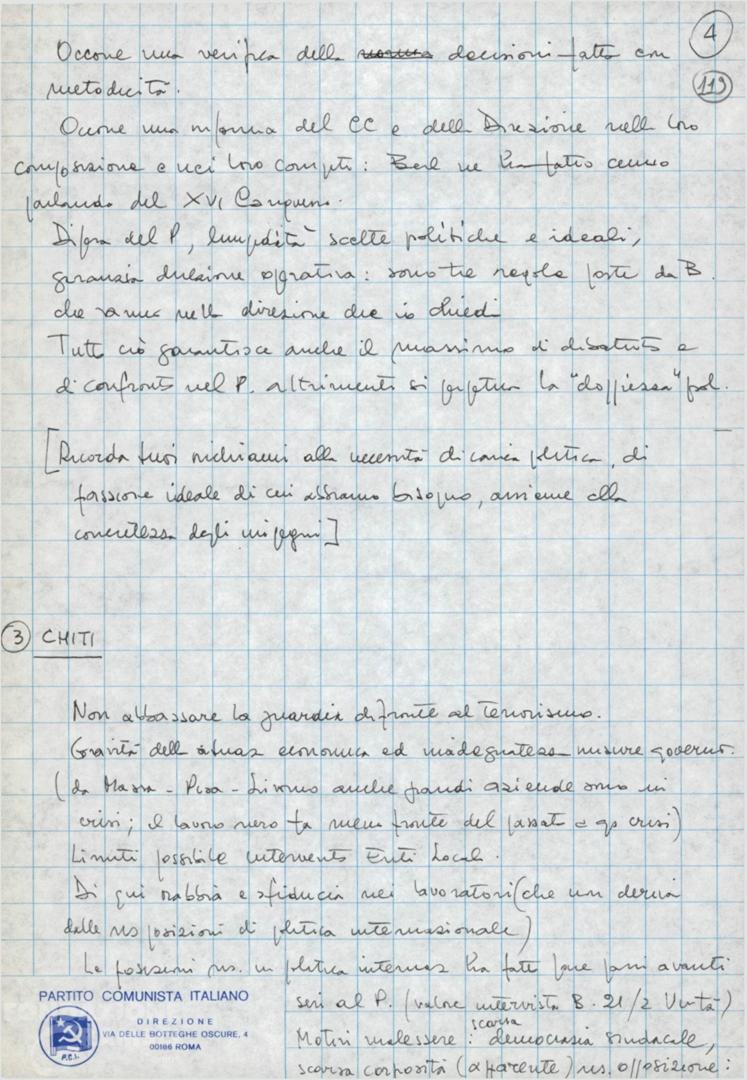 4
119
Occorre una verifica della decisioni fatta con
metodicità.
Occorre una riforma del CC e della Direzione nella loro
composizione e nei loro compiti: Berl ne ha fatto cenno
parlando del XVI Congresso.
Difesa del P, limpidità scelte politiche e ideali,
garanzia direzione operativa: sono tre regole poste da B.
che vanno nella direzione che io chiedi
Tutto ciò garantisce anche il massimo di dibattito e
di confronto nel P. altrimenti si perpetua la "doppiezza" pol.
[Ricorda tuoi richiami alla necessità di carica politica, di
passione ideale di cui abbiamo bisogno, assieme alla
concretezza degli impegni]
3 CHITI
Non abbassare la guardia difronte al terrorismo.
Gravità della situaz economica ed inadeguatezza misure govern.
(da Massa - Pisa - Livorno anche grandi aziende sono in
crisi; il lavoro nero fa meno fronte del passato a qs crisi)
Limiti possibile intervento Enti Local.
Di qui rabbia e sfiducia nei lavoratori (che non deriva
dalle ns posizioni di politica internazionale)
Le posizioni ns. in politica internaz ha fatto fare passi avanti
seri al P. (valore intervista B. 21/2 Unità)
Motivi malessere: scarsa democrazia sindacale,
scarsa corposità (apparente) ns. opposizione:
PARTITO COMUNISTA ITALIANO
DIREZIONE
VIA DELLE BOTTEGHE OSCURE, 4
00186 ROMA
P.C.I.